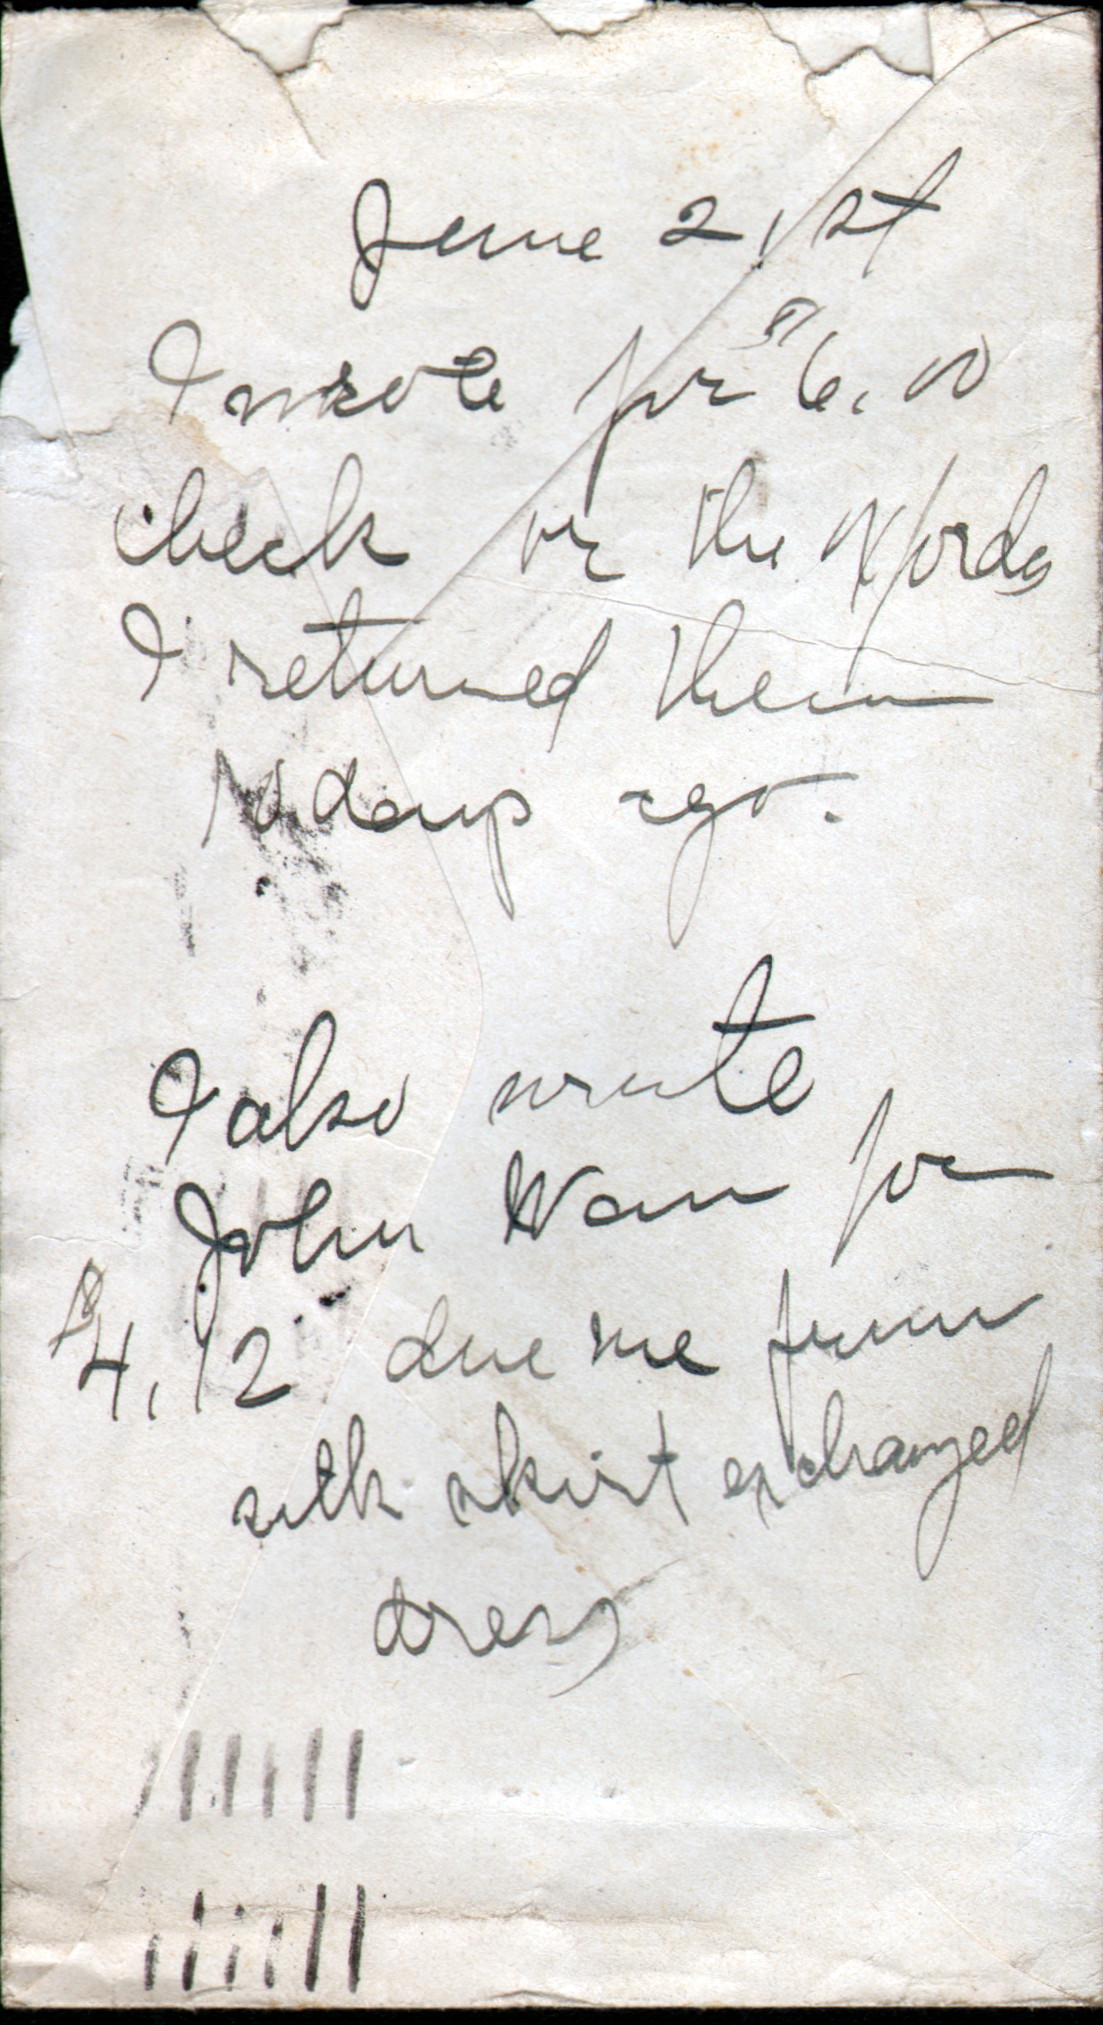 June 21st
I wrote for $6.00
check or the oxfords
I returned them
10 days ago.
I also wrote
John Wan for
$4.12 due me from
silk skirt exchanged
dress